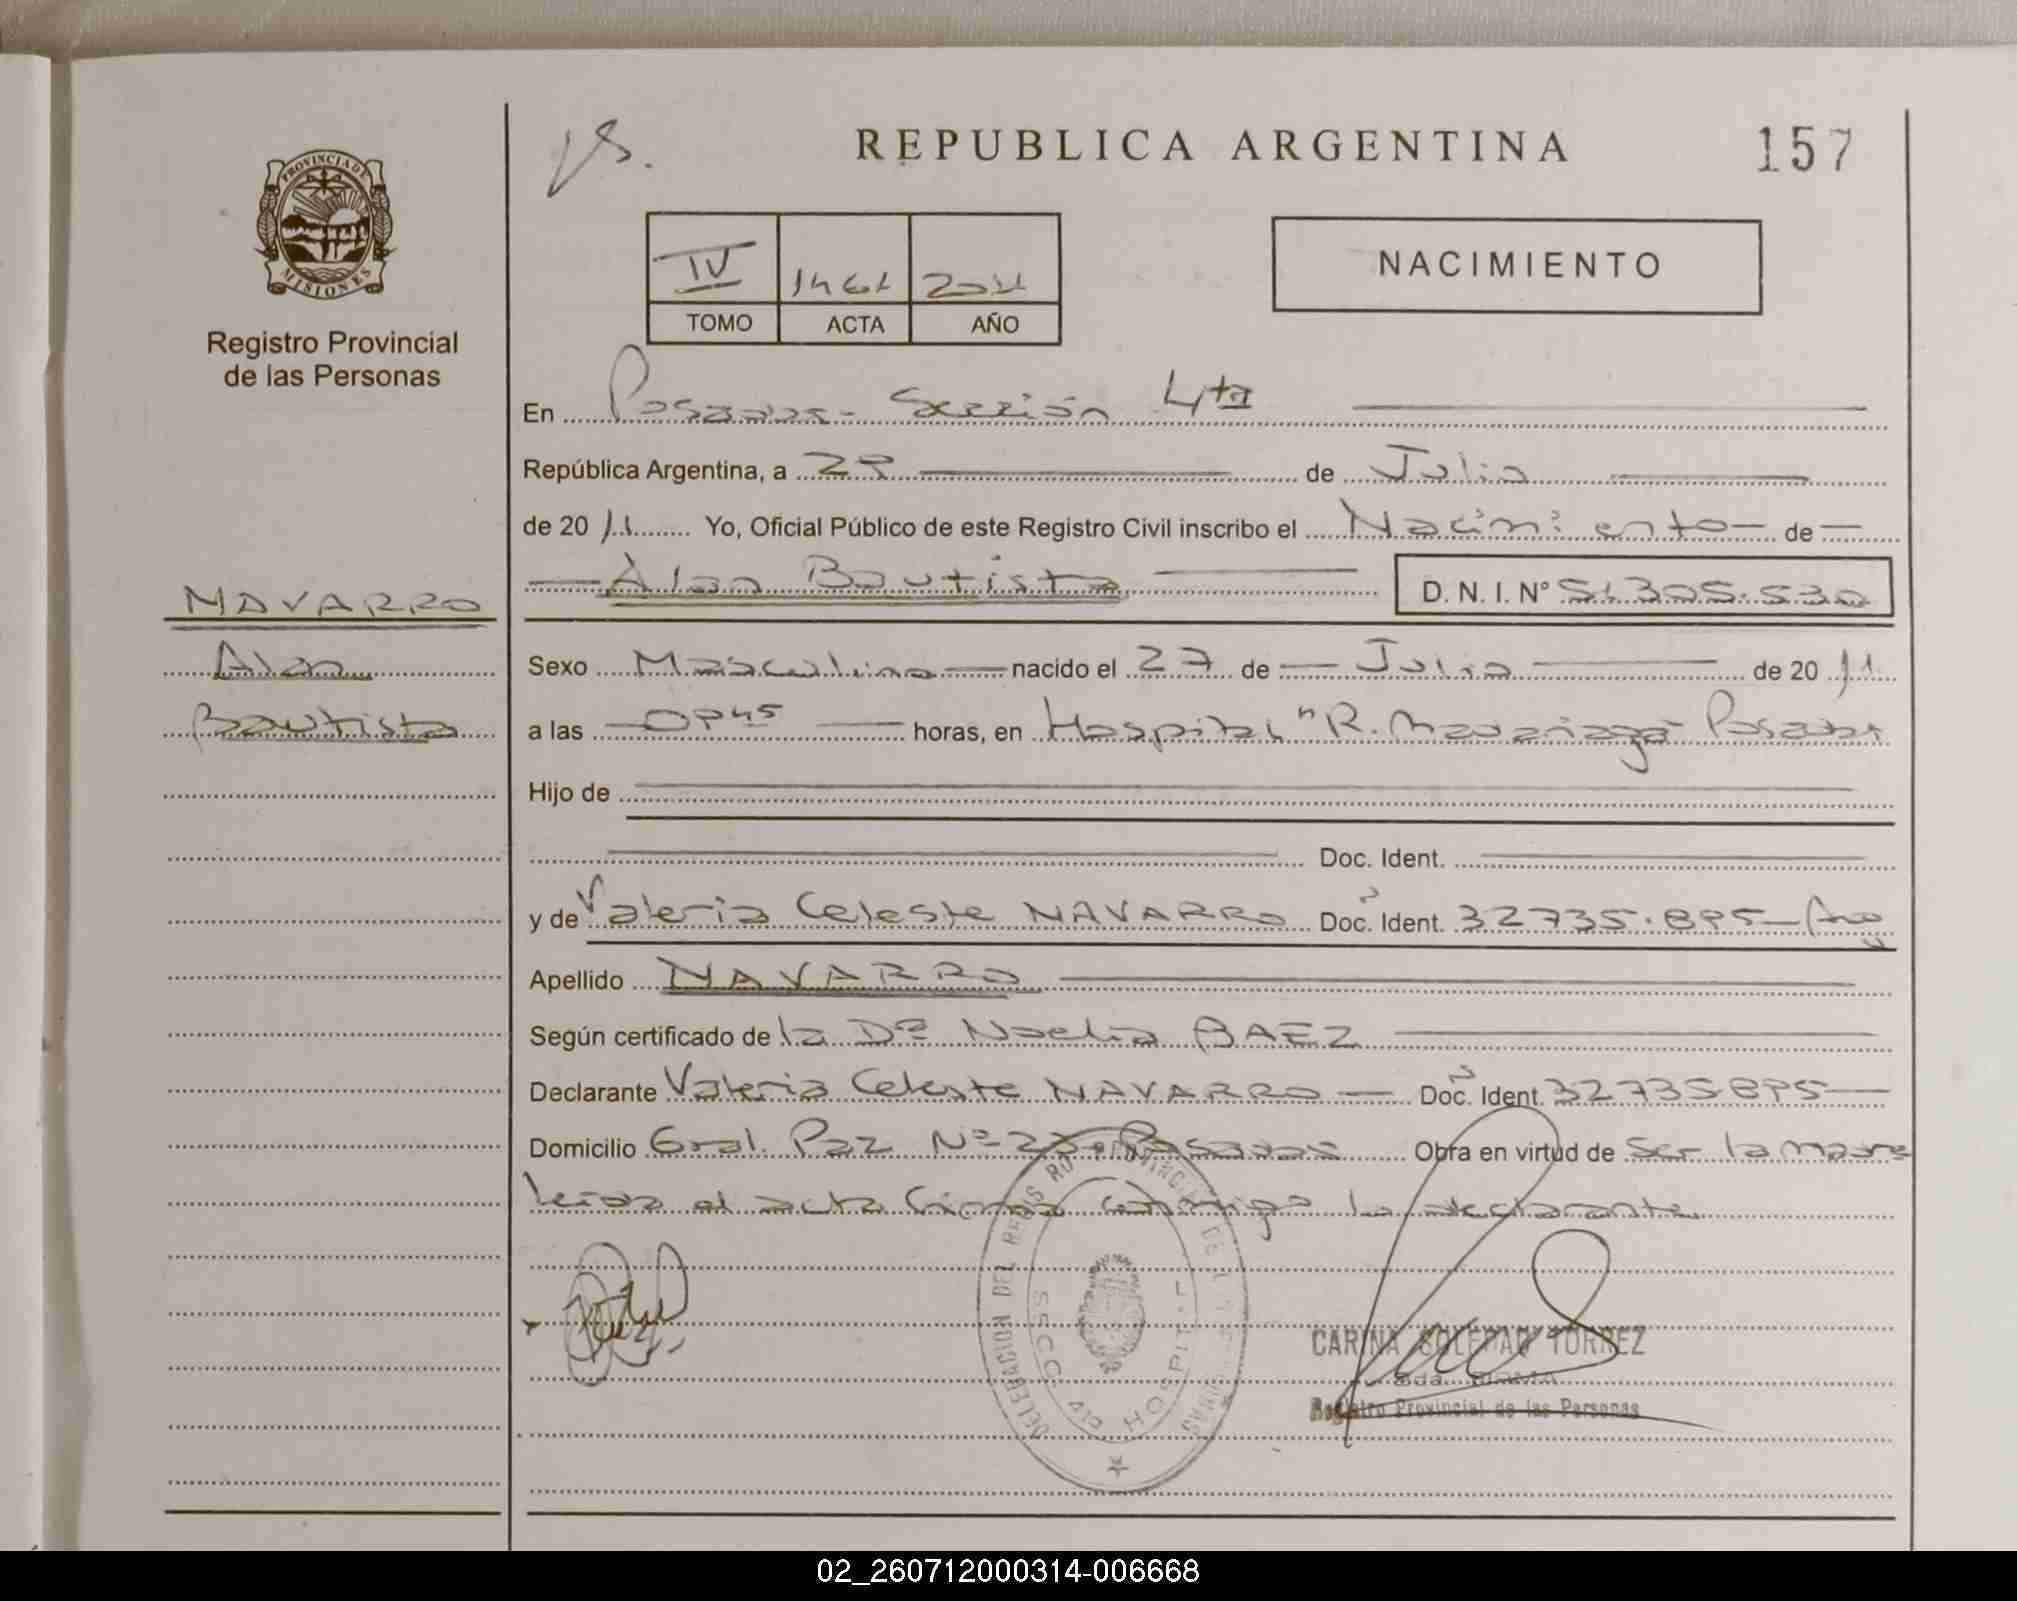 REPUBLICA ARGENTINA
157
PROVINCIA DE
MISIONES
Registro Provincial
de las Personas
IV 1461 2011
TOMO ACTA AÑO
NACIMIENTO
En Posadas - Sección 4ta
República Argentina, a 29 de Julio
de 2011 Yo, Oficial Público de este Registro Civil inscribo el Nacimiento de
Alan Bautista D. N. I. Nº 51.305.530
NAVARRO
Alan
Bautista
Sexo Masculino nacido el 27 de Julio de 2011
a las 0945 horas, en Hospital "R. Madariaga" Posadas
Hijo de
Doc. Ident.
y de Valeria Celeste NAVARRO Doc. Ident. 32735.895 - Arg
Apellido NAVARRO
Según certificado de la Dra Noelia BAEZ
Declarante Valeria Celeste NAVARRO Doc. Ident. 32735.895
Domicilio Gral. Paz Nº Posadas Obra en virtud de ser la madre
leida el acta firma conmigo la declarante
DELEGACION DEL REGISTRO PROVINCIAL DE LAS PERSONAS
SECC. 4ta HOSPITAL
CARINA SOLEDAD TORREZ
Registro Provincial de las Personas
02_260712000314-006668